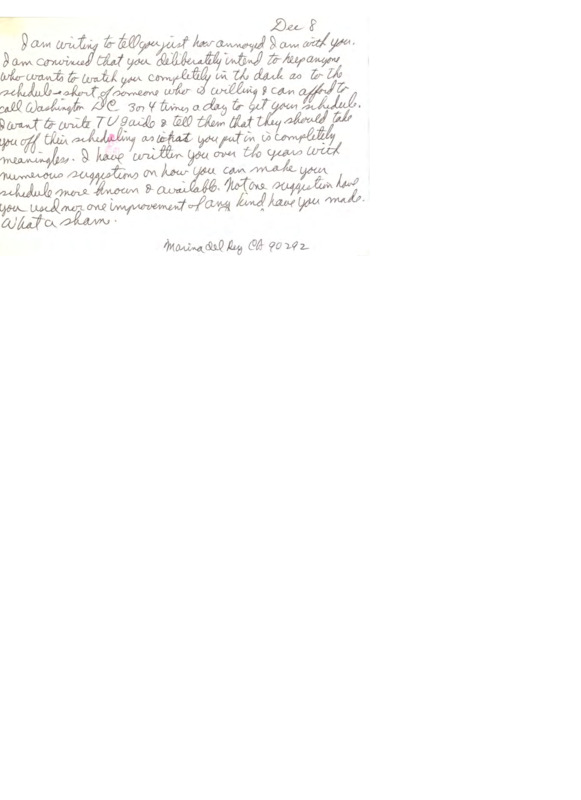 Dec 8
I am writing to tell you just how annoyed I am with you.
I am convinced that you deliberately intend to keep anyone
who wants to watch you completely in the dark as to the
schedule - short of someone who is willing & can afford to
call Washington DC 3 or 4 times a day to get your schedule.
I want to write TV Guide & tell them that they should take
you off their scheduling as what you put in is completely
meaningless. I have written you over the years with
numerous suggestions on how you can make your
schedule more known & available. Not one suggestion have
you used nor one improvement of any kind have you made.
What a sham.
Marina del Rey CA 90292